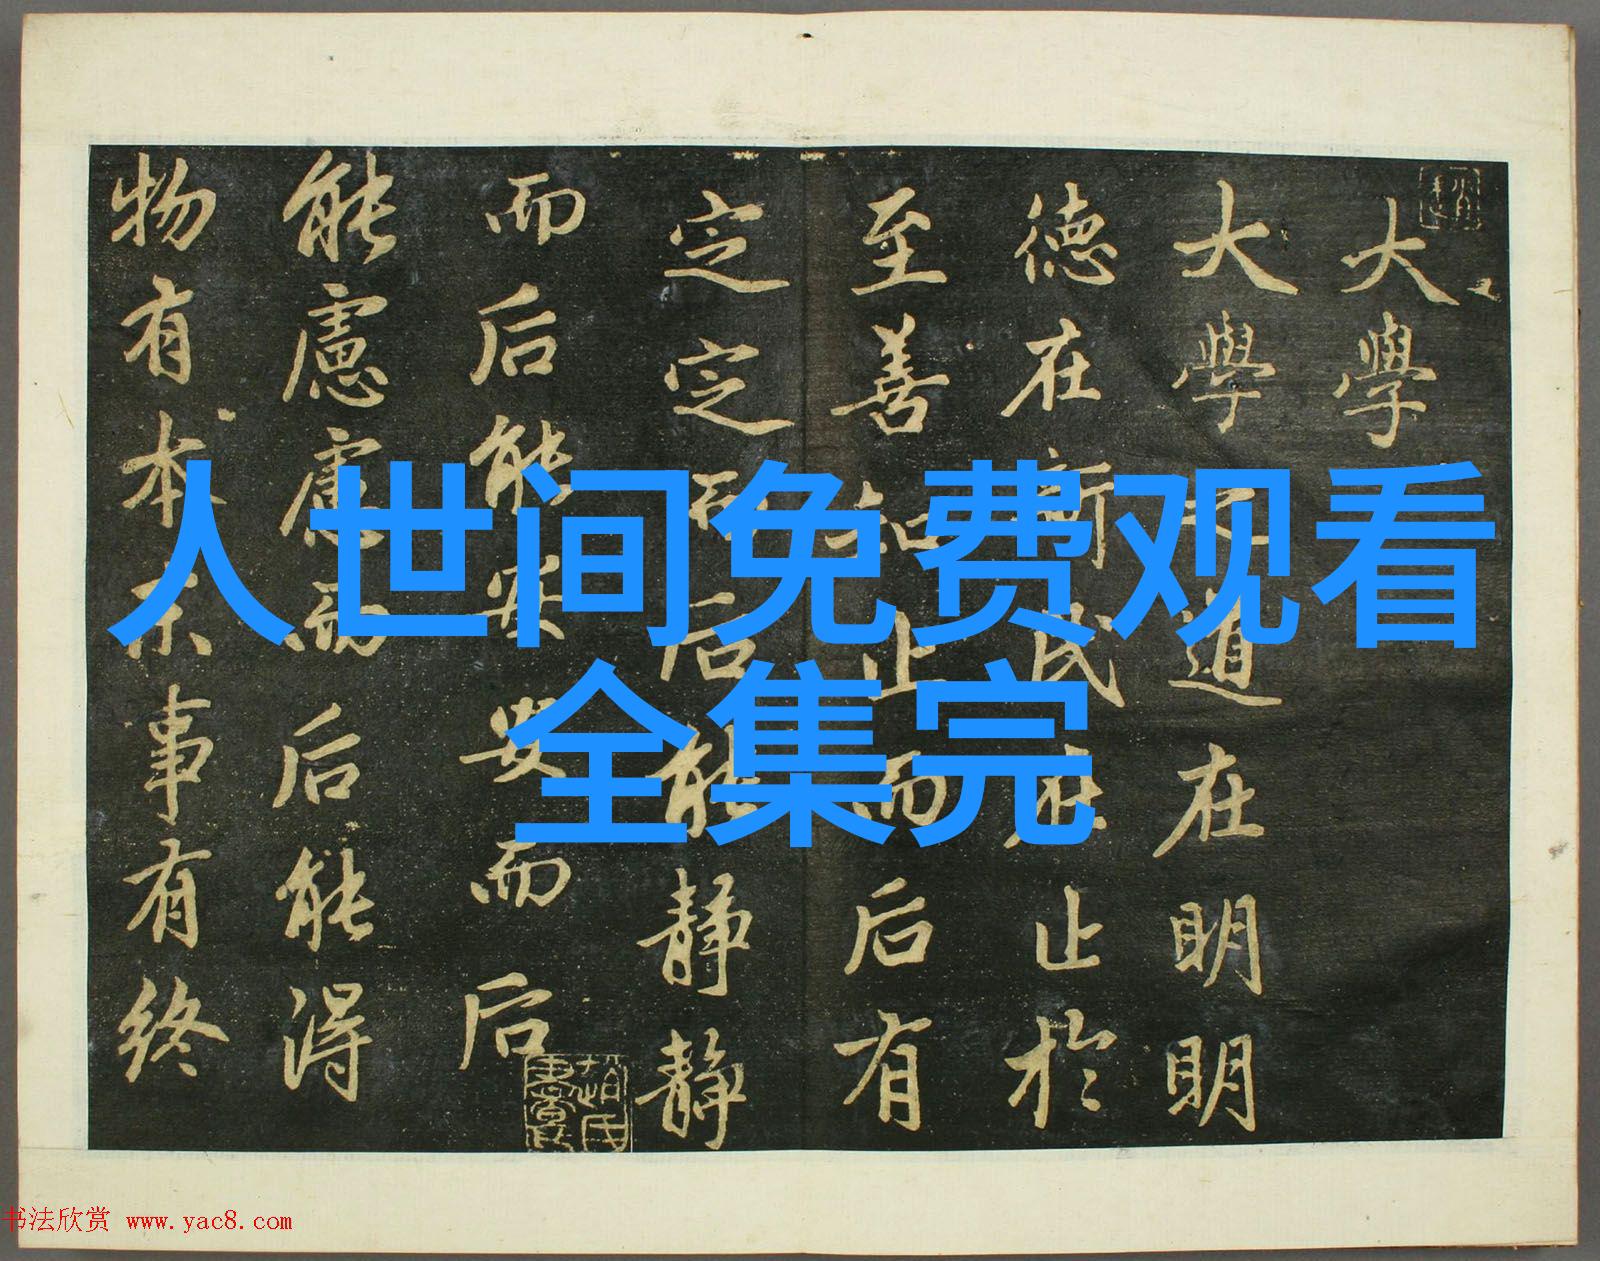 大學
大學之道在明明
德在新民在止於
至善知止而后有
定定而后能靜靜
而后能安安而后
能慮慮而后能得
物有本末事有終
人世间免费观看
全集完
书法欣赏 www.yac8.com